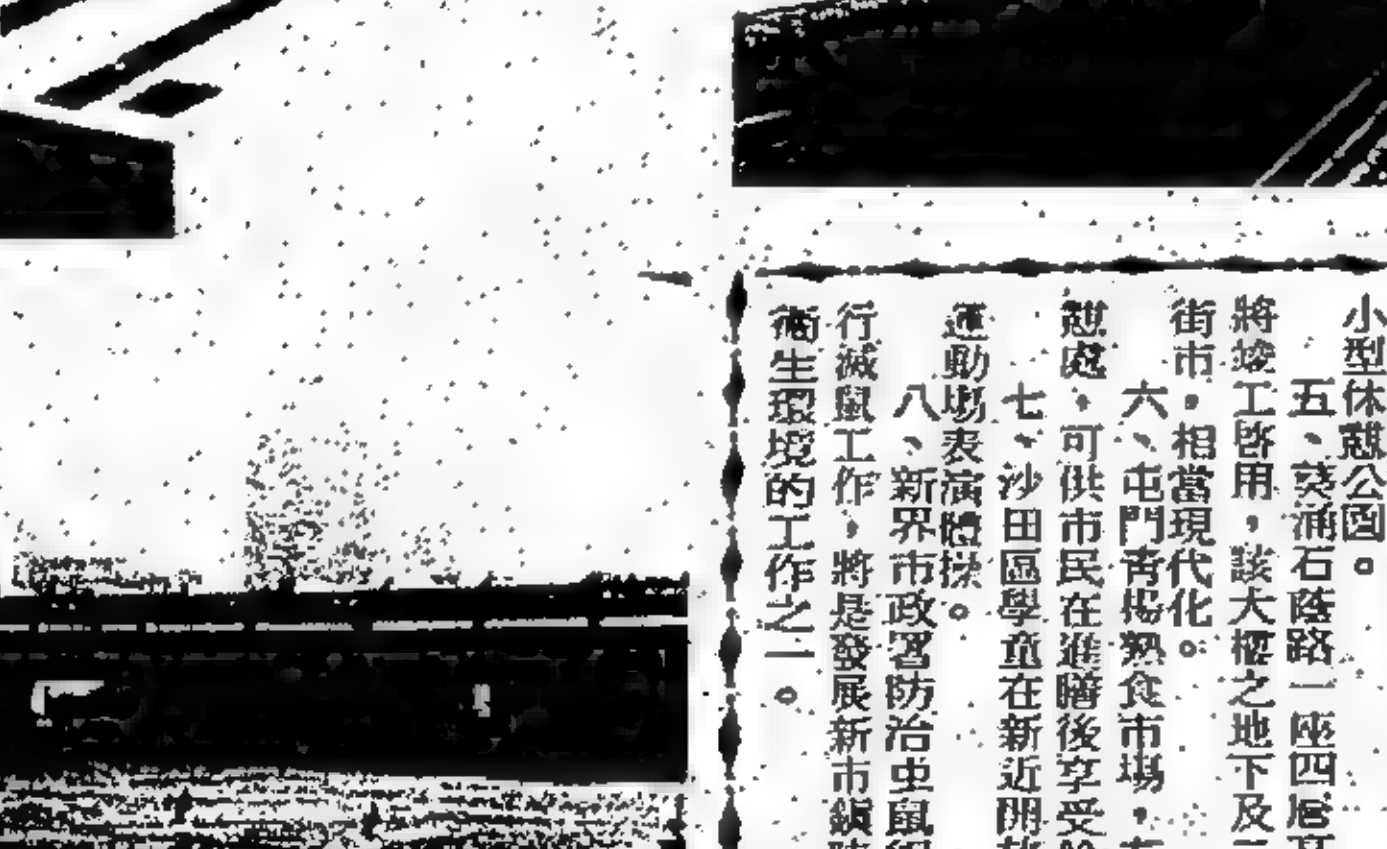 小型休憩公園。
五、葵涌石蔭路一座四層
將竣工啓用，該大樓之地下及
街市。相當現代化。
六、屯門青楊熟食市場，
憩處，可供市民在進膳後享受
七、沙田區學童在新近開
運動場表演體操。
八、新界市政署防治虫鼠
行滅鼠工作，將是發展新市鎮
衞生環境的工作之一。